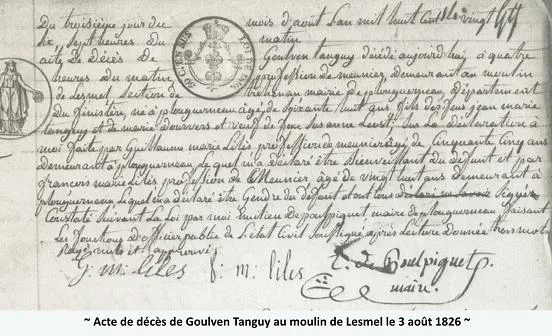 Du troisième jour du mois d'août l'an mil huit cent vingt
six Sept heures du matin
acte de Décès de Goulven Tanguy décédé aujourd'hui à quatre
heures du matin profession de meunier, demeurant au moulin
de Lesmel section de trémenan mairie de plouguerneau, département
du finistère, né à plouguerneau âgé de soixante huit ans fils de feu jean marie
tanguy et de marie et veuf de feue Susanne Sur la déclaration à
moi faite par Guillaume marie Liles profession de meunier âgé de Cinquante Cinq ans
demeurant à plouguerneau lequel m'a déclaré être Bienveillant du défunt et par
francois marie Liles profession de Meunier âgé de vingt huit ans demeurant à
plouguerneau lequel m'a déclaré être Gendre du défunt et ont tous
Constaté Suivant la Loi par moi de poulpiquet maire de plouguerneau faisant
les fonctions d'officier public de l'état Civil Soussigné après Lecture Donnée
G: m: liles f: m: liles
de Poulpiquet
maire.
~ Acte de décès de Goulven Tanguy au moulin de Lesmel le 3 août 1826 ~